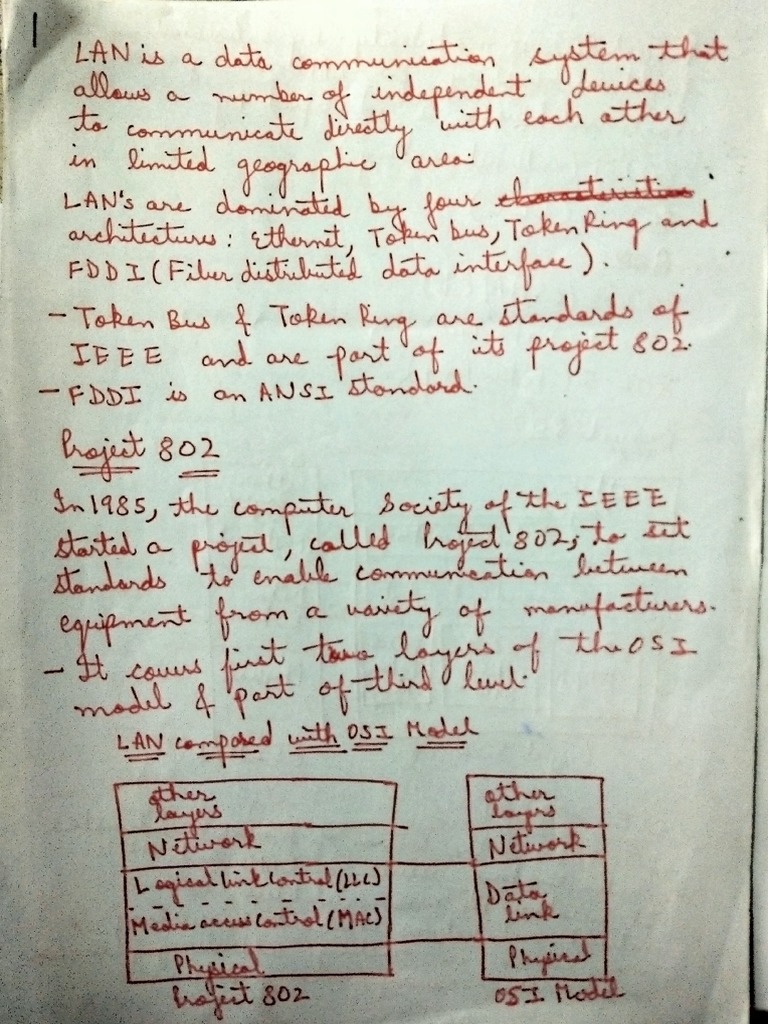 1
LAN is a data communication system that
allows a number of independent devices
to communicate directly with each other
in limited geographic area.
LAN's are dominated by four characteristics
architectures: Ethernet, Token bus, Token Ring and
FDDI (Fiber distributed data interface).
- Token Bus & Token Ring are standards of
IEEE and are part of its project 802.
- FDDI is an ANSI standard.
Project 802
In 1985, the computer Society of the IEEE
started a project, called Project 802, to set
standards to enable communication between
equipment from a variety of manufacturers.
- It covers first two layers of the OSI
model & part of third level.
LAN compared with OSI Model
other
layers
Network
Logical link control (LLC)
Media access control (MAC)
Physical
Project 802
other
layers
Network
Data
link
Physical
OSI Model